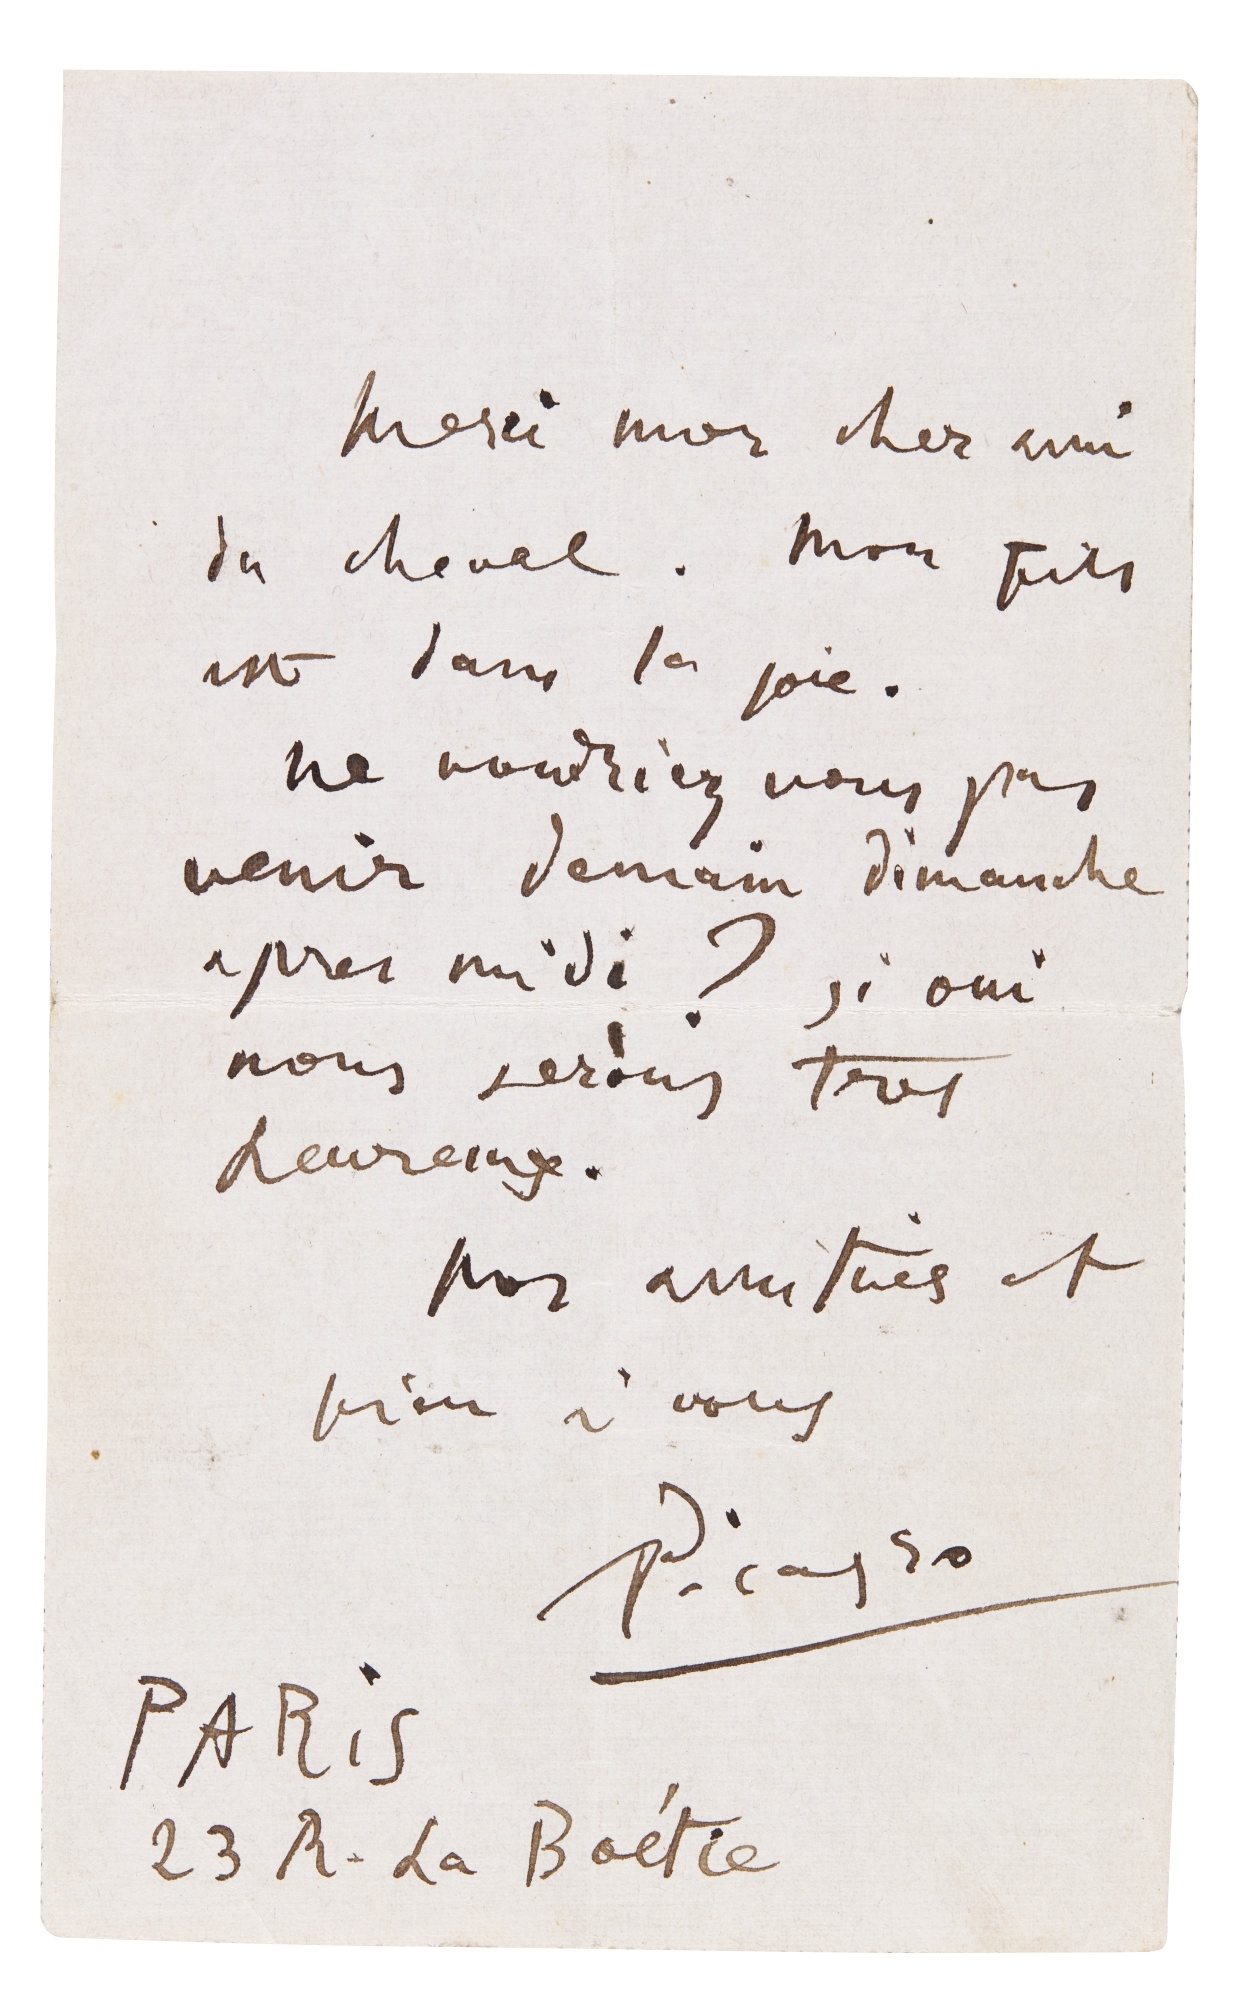 Merci mon cher ami
du cheval. Mon fils
est dans la joie.
Ne voudriez vous pas
venir demain dimanche
apres midi ? si oui
nous serons tres
heureux.
Mes amitiés et
bien à vous
Picasso
PARiS
23 R. La Boétie